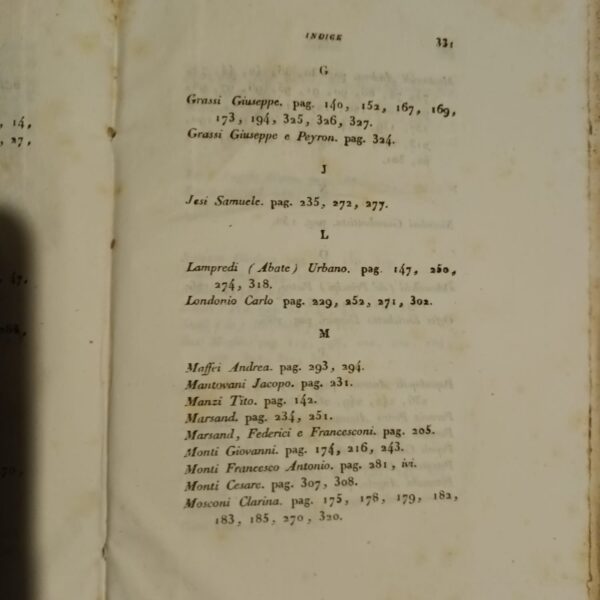 , 14,
, 27,
47.
70,
INDICE 331
G
Grassi Giuseppe. pag. 140, 152, 167, 169,
173, 194, 325, 326, 327.
Grassi Giuseppe e Peyron. pag. 324.
J
Jesi Samuele. pag. 235, 272, 277.
L
Lampredi (Abate) Urbano. pag. 147, 260,
274, 318.
Londonio Carlo pag. 229, 252, 271, 302.
M
Maffei Andrea. pag. 293, 294.
Mantovani Jacopo. pag. 231.
Manzi Tito. pag. 142.
Marsand. pag. 234, 251.
Marsand, Federici e Francesconi. pag. 205.
Monti Giovanni. pag. 174, 216, 243.
Monti Francesco Antonio. pag. 281, ivi.
Monti Cesare. pag. 307, 308.
Mosconi Clarina. pag. 175, 178, 179, 182,
183, 185, 270, 320.